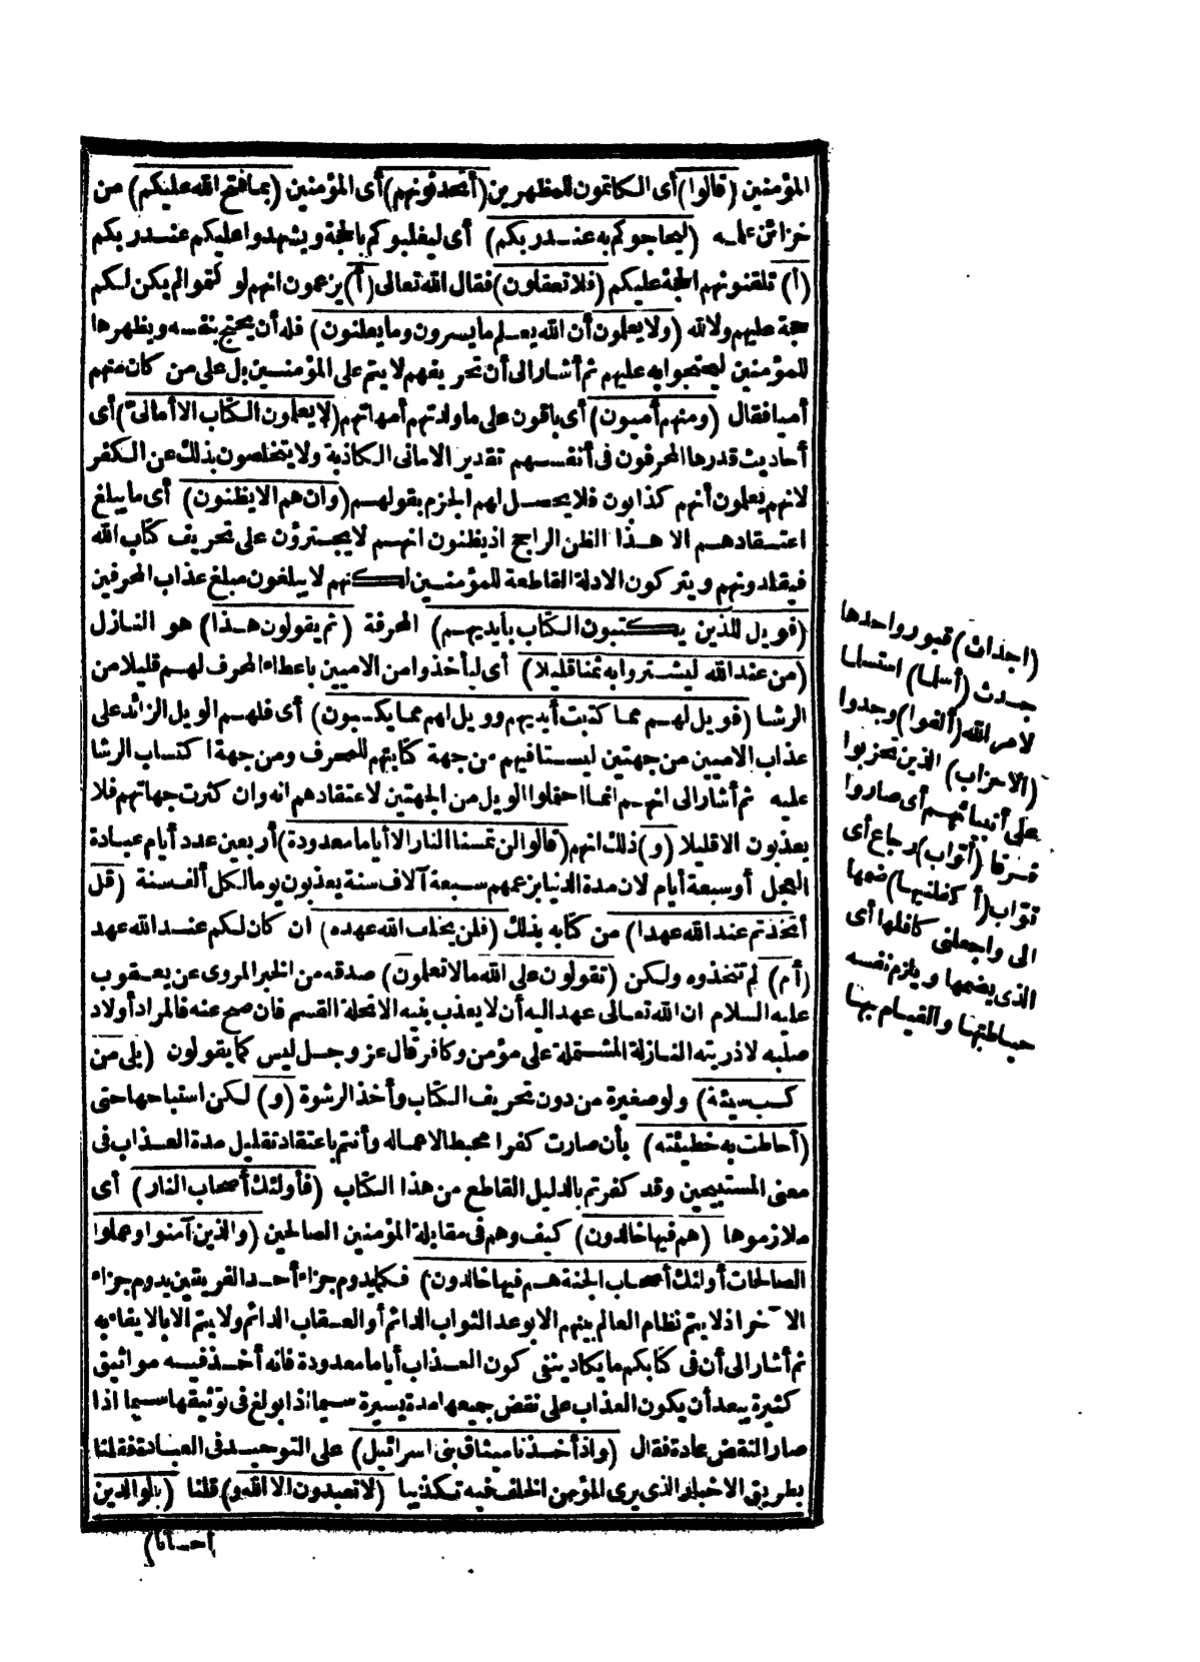 المؤمنين (قالوا) أى الكاتمون للمظهرين (أتحدثونهم) أى المؤمنين (بما فتح الله عليكم) من
خزائن علمه (ليحاجوكم به عند ربكم) أى ليغلبوكم بالحجة ويشهدوا عليكم عند ربكم
(ا) تلقنونهم الحجة عليكم (فلا تعقلون) فقال الله تعالى (أ) يزعمون انهم لو لم يكن لكم
حجة عليهم ولالله (ولا يعلمون أن الله يعلم ما يسرون وما يعلنون) فله أن يحتج بنفسه ويظهرها
للمؤمنين ليحتجوا به عليهم ثم أشار الى أن تحريفهم لا يتم على المؤمنين بل على من كان منهم
أميا فقال (ومنهم أميون) أى باقون على ما ولدتهم أمهاتهم (لا يعلمون الكتاب الا أمانى) أى
أحاديث قدرها المحرفون فى أنفسهم تقدير الامانى الكاذبة ولا يتخلصون بذلك عن الكفر
لانهم يعلمون أنهم كذابون فلا يحصل لهم الجزم بقولهم (وان هم الا يظنون) أى ما يبلغ
اعتقادهم الا هذا الظن الراجح اذ يظنون انهم لا يجترؤن على تحريف كتاب الله
فيقلدونهم ويتركون الادلة القاطعة للمؤمنين لكنهم لا يبلغون مبلغ عذاب المحرفين
(فويل للذين يكتبون الكتاب بأيديهم) المحرفة (ثم يقولون هذا) هو النازل
(من عند الله ليشتروا به ثمنا قليلا) أى ليأخذوا من الاميين باعطاء المحرف لهم قليلا من
الرشا (فويل لهم مما كتبت أيديهم وويل لهم مما يكسبون) أى فلهم الويل الزائد على
عذاب الاميين من جهتين ليستا فيهم من جهة كتابتهم للمحرف ومن جهة اكتساب الرشا
عليه ثم أشار الى انهم انما احتملوا الويل من الجهتين لاعتقادهم انه وان كثرت جهاتهم فلا
يعذبون الا قليلا (و) ذلك انهم (قالوا لن تمسنا النار الا أياما معدودة) أربعين عدد أيام عبادة
العجل أو سبعة أيام لان مدة الدنيا بزعمهم سبعة آلاف سنة يعذبون يوما لكل ألف سنة (قل
أتخذتم عند الله عهدا) من كتابه بذلك (فلن يخلف الله عهده) ان كان لكم عند الله عهد
(أم) لم تتخذوه ولكن (تقولون على الله ما لا تعلمون) صدقه من الخبر المروى عن يعقوب
عليه السلام ان الله تعالى عهد اليه أن لا يعذب بنيه الا تحلة القسم فان صح عنه فالمراد أولاد
صلبه لا ذريته النازلة المشتملة على مؤمن وكافر قال عز وجل ليس كما يقولون (بلى من
كسب سيئة) ولو صغيرة من دون تحريف الكتاب وأخذ الرشوة (و) لكن استباحها حتى
(أحاطت به خطيئته) بأن صارت كفرا محبطا لاعماله وأنتم باعتقاد تقليل مدة العذاب فى
معنى المستبيحين وقد كفرتم بالدليل القاطع من هذا الكتاب (فأولئك أصحاب النار) أى
ملازموها (هم فيها خالدون) كيف وهم فى مقابلة المؤمنين الصالحين (والذين آمنوا وعملوا
الصالحات أولئك أصحاب الجنة هم فيها خالدون) فكما يدوم جزاء أحد الفريقين يدوم جزاء
الآخر اذ لا يتم نظام العالم بينهم الا بوعد الثواب الدائم أو العقاب الدائم ولا يتم الا بالايفاء به
ثم أشار الى أن فى كتابكم ما يكاد ينفى كون العذاب أياما معدودة فانه أخذ فيه مواثيق
كثيرة يبعد أن يكون العذاب على نقض جميعها مدة يسيرة سيما اذا بولغ فى توثيقها سيما اذا
صار النقض عادة فقال (واذ أخذنا ميثاق بنى اسرائيل) على التوحيد فى العبادة فقلنا
بطريق الاخبار الذى يرى المؤمن الخلف فيه تكذيبا (لا تعبدون الا الله و) قلنا (بالوالدين
احسانا)
(اجداث) قبور واحدها
جدث (أسلما) استسلما
لامر الله (ألفوا) وجدوا
(الاحزاب) الذين تحزبوا
على أنبيائهم أى صاروا
فرقا (أواب) رجاع أى
تواب (أكفلنيها) ضمها
الى واجعلنى كافلها أى
الذى يضمها ويلزم نفسه
حياطتها والقيام بها